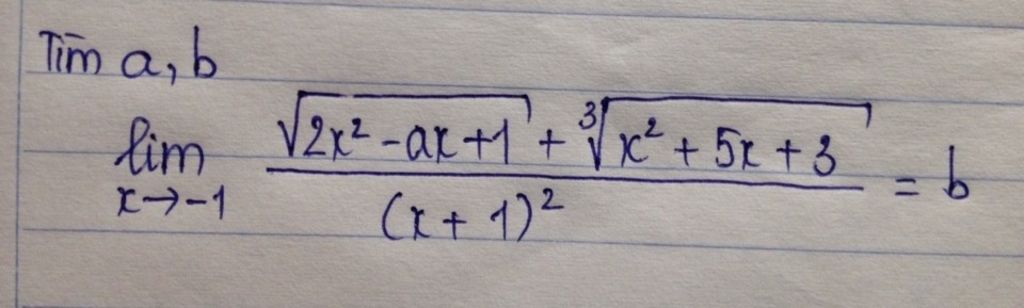 Tìm a, b
lim x→-1 (√(2x² - ax + 1) + ∛(x² + 5x + 3)) / (x + 1)² = b